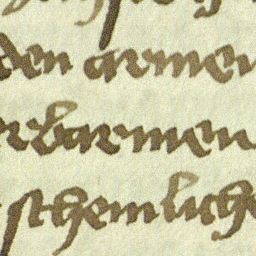 den armen
erbarmen
schemlich